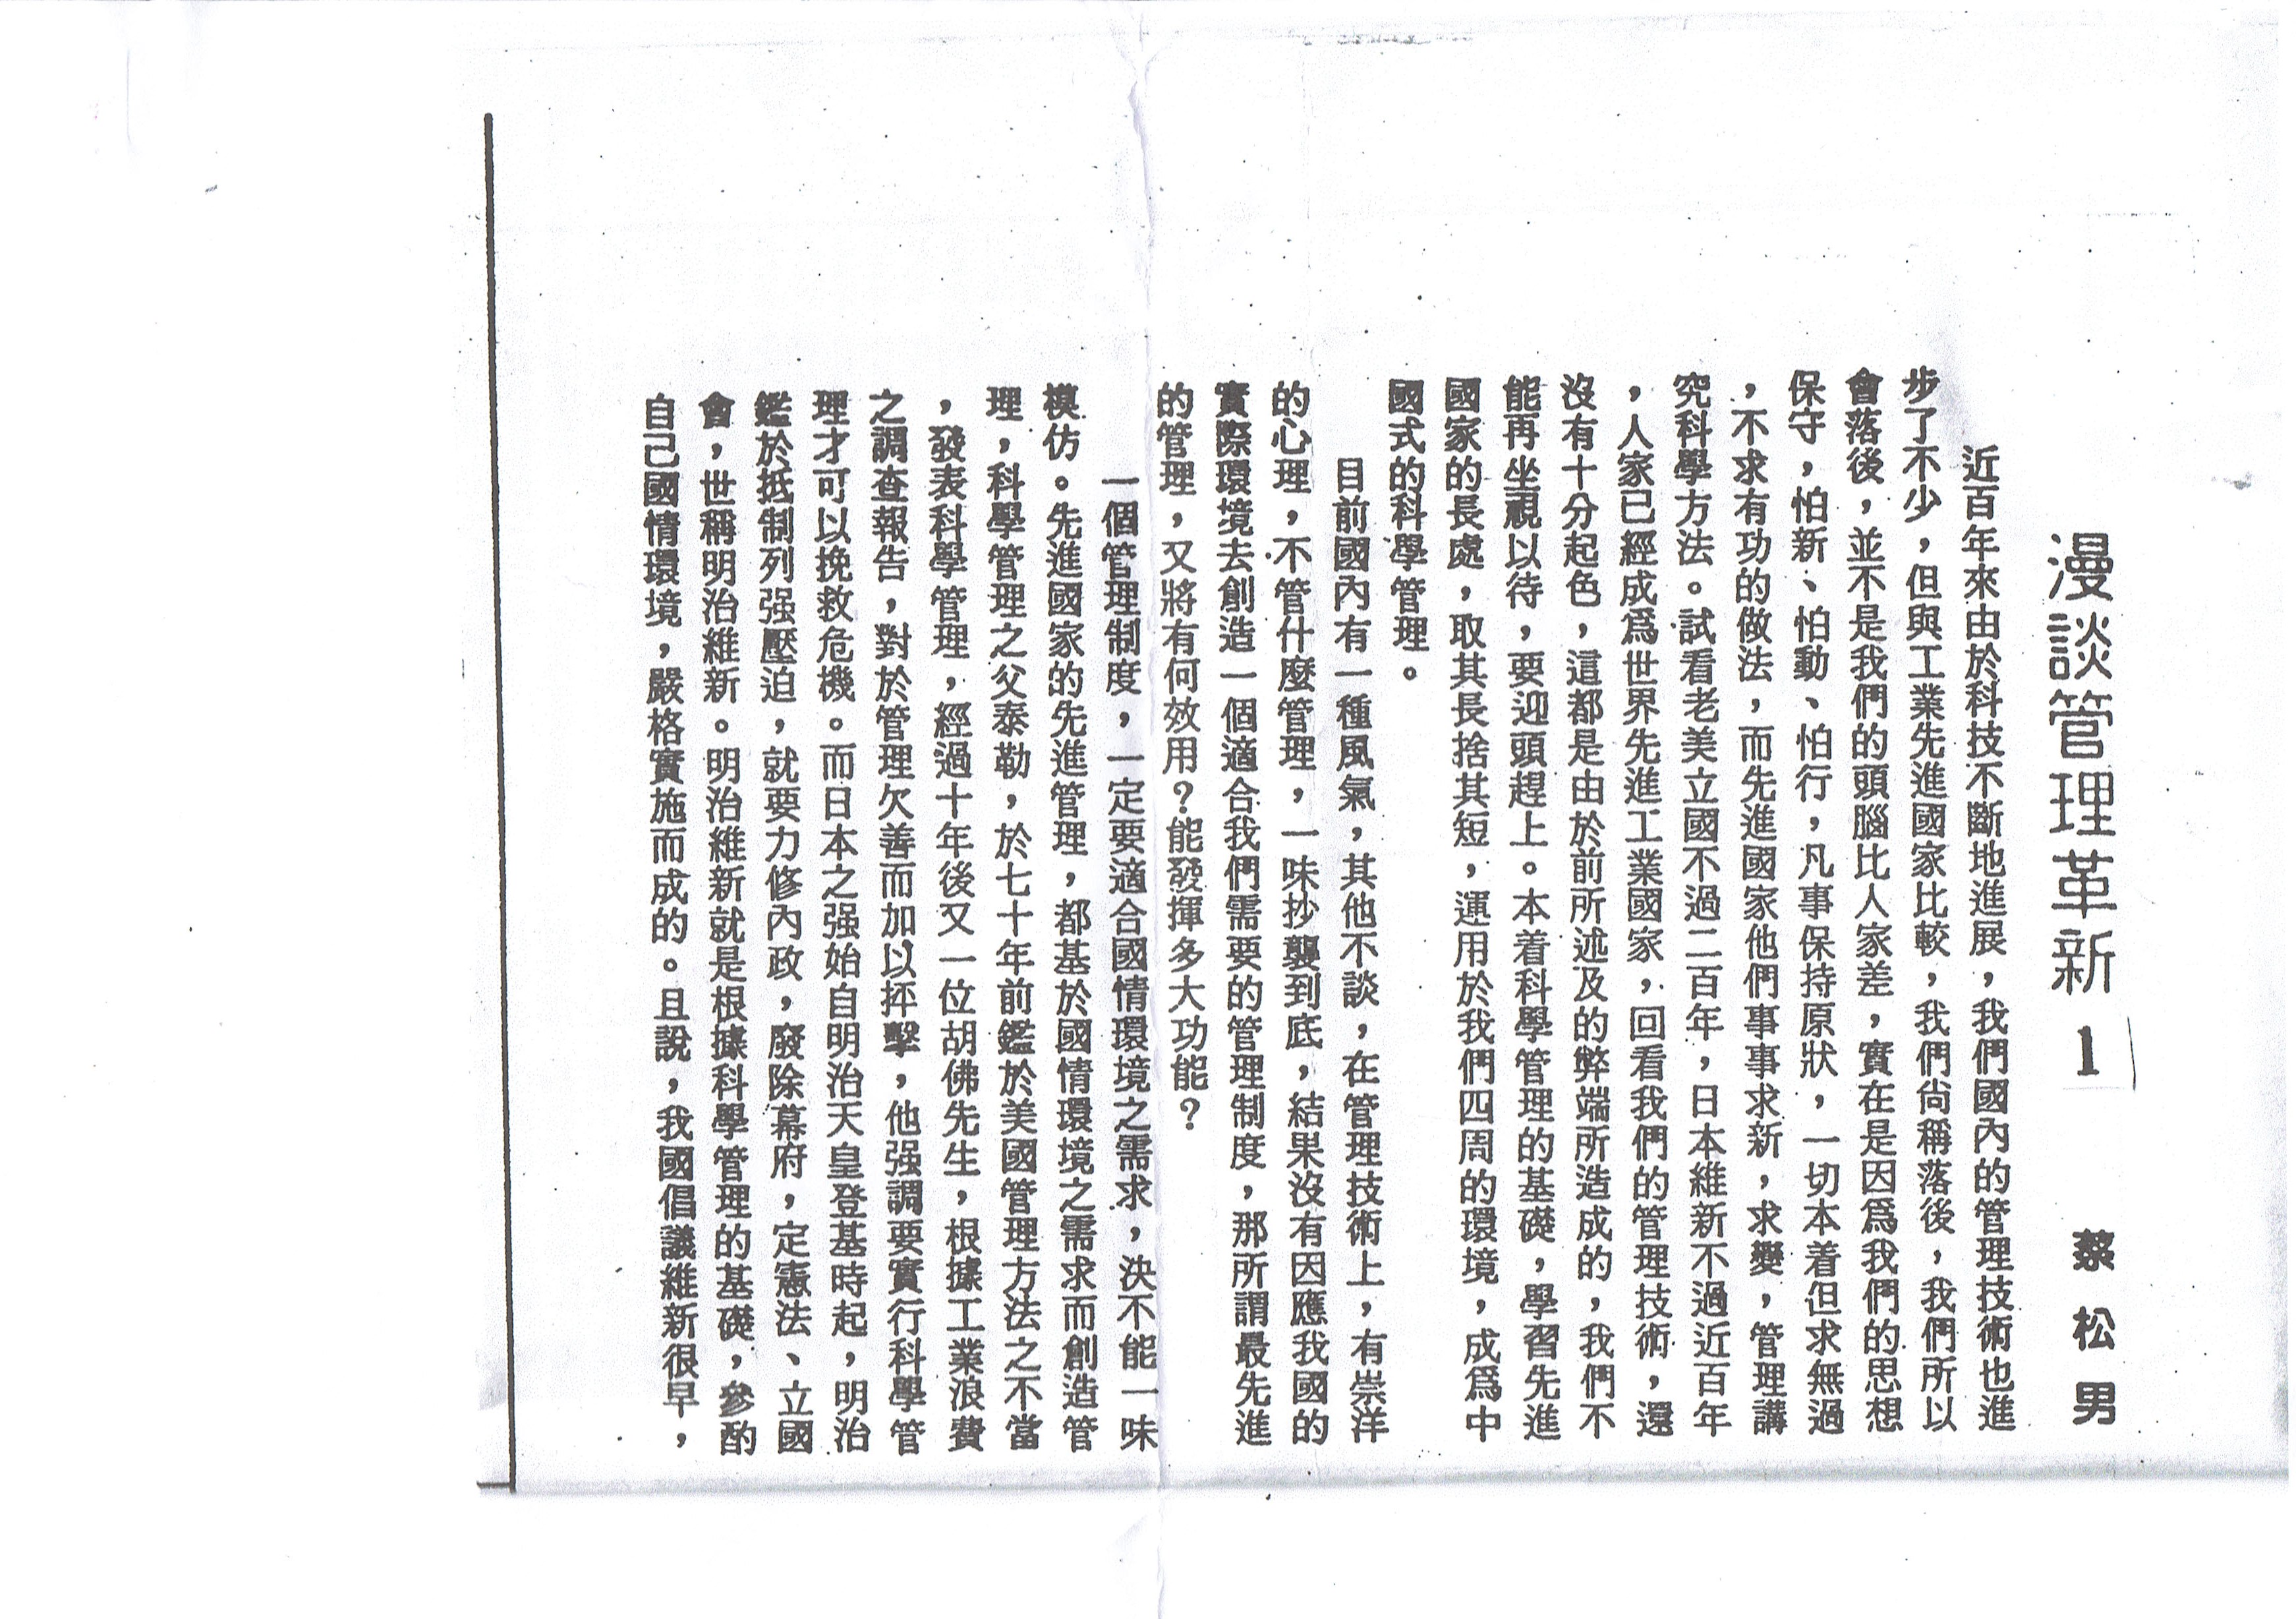 漫談管理革新 1
蔡松男
近百年來由於科技不斷地進展，我們國內的管理技術也進
步了不少，但與工業先進國家比較，我們尚稱落後，我們所以
會落後，並不是我們的頭腦比人家差，實在是因爲我們的思想
保守，怕新、怕動、怕行，凡事保持原狀，一切本着但求無過
，不求有功的做法，而先進國家他們事事求新，求變，管理講
究科學方法。試看老美立國不過二百年，日本維新不過近百年
，人家已經成爲世界先進工業國家，回看我們的管理技術，還
沒有十分起色，這都是由於前所述及的弊端所造成的，我們不
能再坐視以待，要迎頭趕上。本着科學管理的基礎，學習先進
國家的長處，取其長捨其短，運用於我們四周的環境，成爲中
國式的科學管理。
目前國內有一種風氣，其他不談，在管理技術上，有崇洋
的心理，不管什麼管理，一味抄襲到底，結果沒有因應我國的
實際環境去創造一個適合我們需要的管理制度，那所謂最先進
的管理，又將有何效用？能發揮多大功能？
一個管理制度，一定要適合國情環境之需求，決不能一味
模仿。先進國家的先進管理，都基於國情環境之需求而創造管
理，科學管理之父泰勒，於七十年前鑑於美國管理方法之不當
，發表科學管理，經過十年後又一位胡佛先生，根據工業浪費
之調查報告，對於管理欠善而加以抨擊，他强調要實行科學管
理才可以挽救危機。而日本之强始自明治天皇登基時起，明治
鑑於抵制列强壓迫，就要力修內政，廢除幕府，定憲法、立國
會，世稱明治維新。明治維新就是根據科學管理的基礎，參酌
自己國情環境，嚴格實施而成的。且說，我國倡議維新很早，